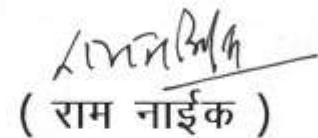 ( राम नाईक )